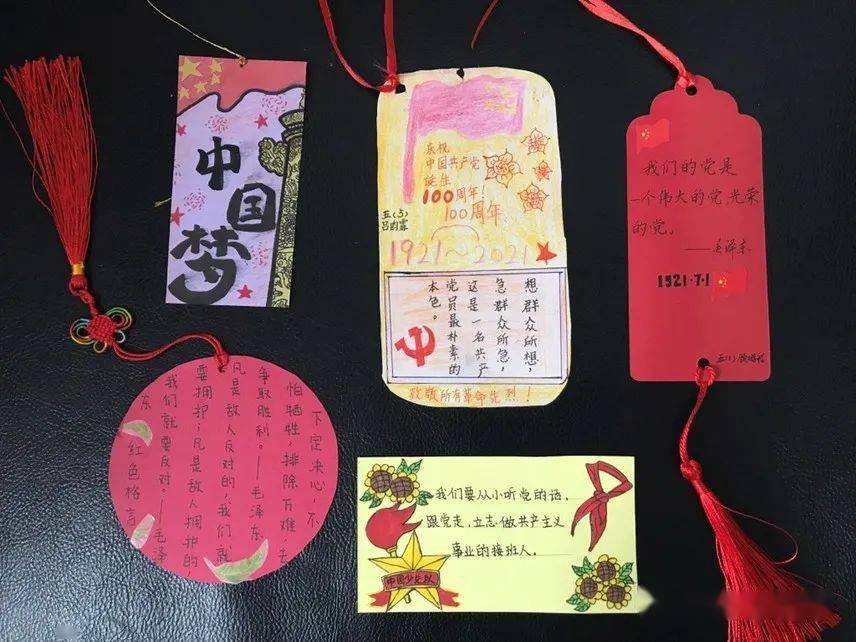 中国梦
庆祝
中国共产党
诞生
100周年!
100周年
五(5)
1921~2021
想群众所想,
急群众所急,
这是一名共产
党员最朴素的
本色。
致敬所有革命先烈!
我们的党是
一个伟大的党,光荣
的党。
——毛泽东
1921·7·1
下定决心,不
怕牺牲,排除万难,去
争取胜利。——毛泽东
凡是敌人反对的,我们就
要拥护;凡是敌人拥护的,
我们就要反对。——毛泽
东
红色格言
我们要从小听党的话,
跟党走,立志做共产主义
事业的接班人。
中国少先队